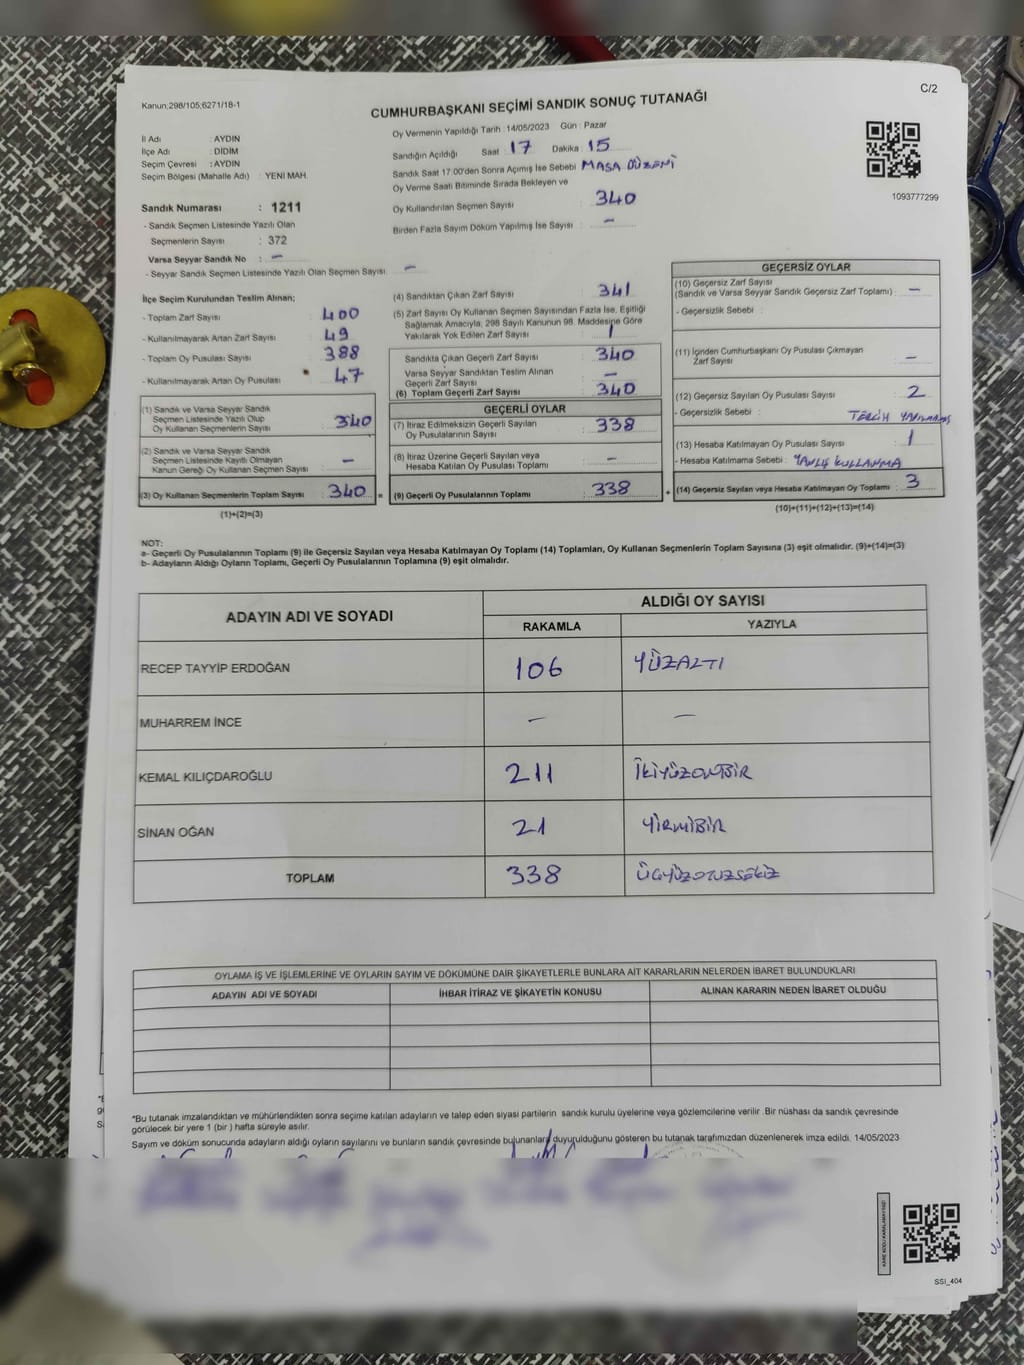 C/2
Kanun;298/105;6271/18-1
CUMHURBAŞKANI SEÇİMİ SANDIK SONUÇ TUTANAĞI
İl Adı : AYDIN
İlçe Adı : DİDİM
Seçim Çevresi : AYDIN
Seçim Bölgesi (Mahalle Adı) : YENİ MAH.
Sandık Numarası : 1211
- Sandık Seçmen Listesinde Yazılı Olan
Seçmenlerin Sayısı : 372
Varsa Seyyar Sandık No : –
- Seyyar Sandık Seçmen Listesinde Yazılı Olan Seçmen Sayısı: –
Oy Vermenin Yapıldığı Tarih : 14/05/2023 Gün : Pazar
Sandığın Açıldığı Saat 17 Dakika : 15
Sandık Saat 17.00'den Sonra Açımış İse Sebebi : MASA DÜZENİ
Oy Verme Saati Bitiminde Sırada Bekleyen ve
Oy Kullandırılan Seçmen Sayısı : 340
Birden Fazla Sayım Döküm Yapılmış İse Sayısı : –
1093777299
İlçe Seçim Kurulundan Teslim Alınan;
- Toplam Zarf Sayısı : 400
- Kullanılmayarak Artan Zarf Sayısı : 49
- Toplam Oy Pusulası Sayısı : 388
- Kullanılmayarak Artan Oy Pusulası : 47
(1) Sandık ve Varsa Seyyar Sandık
Seçmen Listesinde Yazılı Olup
Oy Kullanan Seçmenlerin Sayısı : 340
(2) Sandık ve Varsa Seyyar Sandık
Seçmen Listesinde Kayıtlı Olmayan
Kanun Gereği Oy Kullanan Seçmen Sayısı : –
(3) Oy Kullanan Seçmenlerin Toplam Sayısı : 340 =
(1)+(2)=(3)
(4) Sandıktan Çıkan Zarf Sayısı : 341
(5) Zarf Sayısı Oy Kullanan Seçmen Sayısından Fazla İse, Eşitliği
Sağlamak Amacıyla, 298 Sayılı Kanunun 98. Maddesine Göre
Yakılarak Yok Edilen Zarf Sayısı : 1
Sandıkta Çıkan Geçerli Zarf Sayısı : 340
Varsa Seyyar Sandıktan Teslim Alınan
Geçerli Zarf Sayısı : –
(6) Toplam Geçerli Zarf Sayısı : 340
GEÇERLİ OYLAR
(7) İtiraz Edilmeksizin Geçerli Sayılan
Oy Pusulalarının Sayısı : 338
(8) İtiraz Üzerine Geçerli Sayılan veya
Hesaba Katılan Oy Pusulası Toplamı : –
(9) Geçerli Oy Pusulalarının Toplamı : 338 +
GEÇERSİZ OYLAR
(10) Geçersiz Zarf Sayısı
(Sandık ve Varsa Seyyar Sandık Geçersiz Zarf Toplamı) : –
- Geçersizlik Sebebi :
(11) İçinden Cumhurbaşkanı Oy Pusulası Çıkmayan
Zarf Sayısı : –
(12) Geçersiz Sayılan Oy Pusulası Sayısı : 2
- Geçersizlik Sebebi : TERCİH
(13) Hesaba Katılmayan Oy Pusulası Sayısı : 1
- Hesaba Katılmama Sebebi : YANLIŞ KULLANMA
(14) Geçersiz Sayılan veya Hesaba Katılmayan Oy Toplamı : 3
(10)+(11)+(12)+(13)=(14)
NOT:
a- Geçerli Oy Pusulalarının Toplamı (9) ile Geçersiz Sayılan veya Hesaba Katılmayan Oy Toplamı (14) Toplamları, Oy Kullanan Seçmenlerin Toplam Sayısına (3) eşit olmalıdır. (9)+(14)=(3)
b- Adayların Aldığı Oyların Toplamı, Geçerli Oy Pusulalarının Toplamına (9) eşit olmalıdır.
ADAYIN ADI VE SOYADI
ALDIĞI OY SAYISI
RAKAMLA YAZIYLA
RECEP TAYYİP ERDOĞAN 106 YÜZALTI
MUHARREM İNCE – –
KEMAL KILIÇDAROĞLU 211 İKİYÜZONBİR
SİNAN OĞAN 21 YİRMİBİR
TOPLAM 338 ÜÇYÜZOTUZSEKİZ
OYLAMA İŞ VE İŞLEMLERİNE VE OYLARIN SAYIM VE DÖKÜMÜNE DAİR ŞİKAYETLERLE BUNLARA AİT KARARLARIN NELERDEN İBARET BULUNDUKLARI
ADAYIN ADI VE SOYADI İHBAR İTİRAZ VE ŞİKAYETİN KONUSU ALINAN KARARIN NEDEN İBARET OLDUĞU
*Bu tutanak imzalandıktan ve mühürlendikten sonra seçime katılan adayların ve talep eden siyasi partilerin sandık kurulu üyelerine veya gözlemcilerine verilir .Bir nüshası da sandık çevresinde
görülecek bir yere 1 (bir ) hafta süreyle asılır.
Sayım ve döküm sonucunda adayların aldığı oyların sayılarını ve bunların sandık çevresinde bulunanlara duyurulduğunu gösteren bu tutanak tarafımızdan düzenlenerek imza edildi. 14/05/2023
SSİ_404